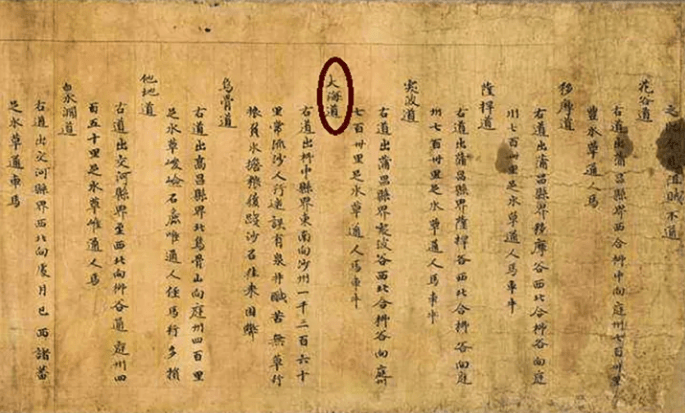 阻賊不通
花谷道
右道出蒲昌縣界西合柳中向庭州七百卅里
豐水草通人馬
移摩道
右道出蒲昌縣界移摩谷西北合柳谷向庭
州七百卅里足水草通人馬車牛
薩捍道
右道出蒲昌縣界薩捍谷西北合柳谷向庭
州七百卅里足水草通人馬車牛
突波道
右道出蒲昌縣界突波谷西北合柳谷向庭州
七百卅里足水草通人馬車牛
大海道
右道出柳中縣界東南向沙州一千三百六十
里常流沙人行迷誤有泉井鹹苦無草行
旅負水擔糧履踐沙石往來困弊
烏骨道
右道出高昌縣界北烏骨山向庭州四百里
足水草峻嶮石麁唯通人徑馬行多損
他地道
右道出交河縣界至西北向柳谷通庭州四
百五十里足水草唯通人馬
白水澗道
右道出交河縣界西北向處月已西諸蕃
足水草通車馬